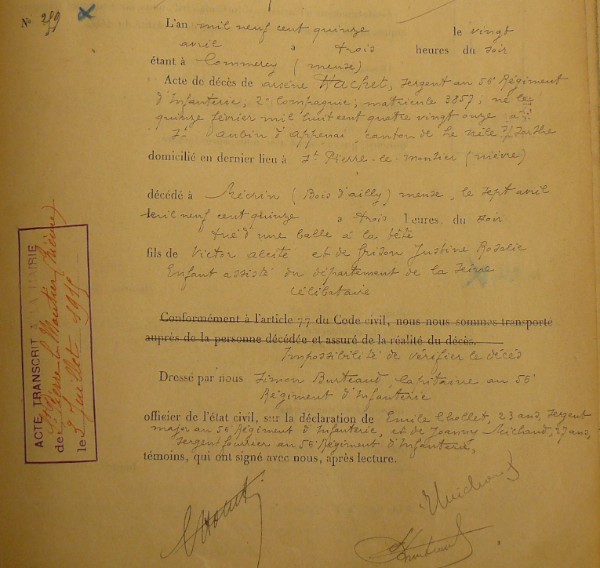 N° 289
L'an mil neuf cent quinze le vingt
avril à trois heures du soir
étant à Commercy (meuse)
Acte de décès de arsène Vachet, sergent au 56e Régiment
d'Infanterie, 2e Compagnie, matricule 3857, né le
quinze février mil huit cent quatre vingt onze à
St Aubin d'Appenai, canton de le Mêle s/ Sarthe
domicilié en dernier lieu à St Pierre-le-moutier (nièvre)
décédé à Mécrin (Bois d'ailly) meuse, le sept avril
mil neuf cent quinze à trois heures du soir
tué d'une balle à la tête
fils de Victor alerte et de Justine Rosalie
Enfant assisté du département de la Seine
célibataire
Conformément à l'article 77 du Code civil, nous nous sommes transporté
auprès de la personne décédée et assuré de la réalité du décès.
Impossibilité de vérifier le décès
Dressé par nous Simon Capitaine au 56e
Régiment d'Infanterie
officier de l'état civil, sur la déclaration de Emile Chollet, 23 ans, sergent
major au 56e Régiment d'Infanterie, et de Joanny Michaud, 27 ans,
Sergent fourrier au 56e Régiment d'Infanterie,
témoins, qui ont signé avec nous, après lecture.
ACTE TRANSCRIT À LA MAIRIE
de St Pierre le Moutier (Nièvre)
le 3 Juillet 1915